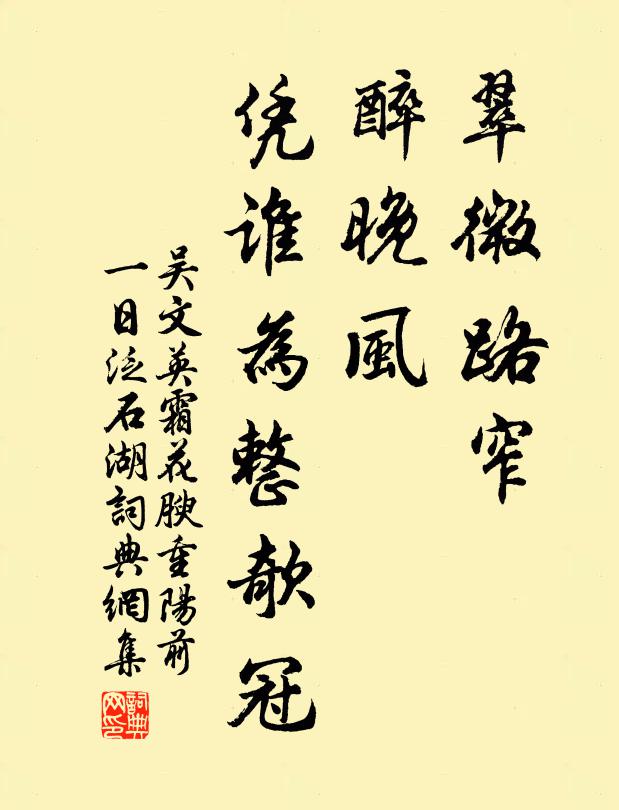 翠微路窄
醉晚風
凭誰為整欹冠
吴文英霜花腴重陽前
一日泛石湖詞典網集
詞典网印